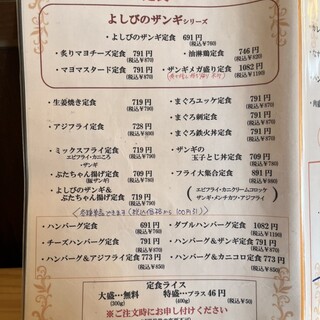 よしびのザンギシリーズ
・よしびのザンギ定食 691円
(税込¥760)
・炙りマヨチーズ 791円
(税込¥870)
・油淋鶏定食 746円
(税込¥820)
・マヨマスタード 791円
(税込¥870)
・ザンギメガ盛り 1082円
(税込¥1190)
・生姜焼き定食 719円
(税込¥790)
・まぐろユッケ定食 791円
(税込¥870)
・まぐろ刺定食 791円
(税込¥870)
・アジフライ定食 728円
(税込¥800)
・まぐろ鉄火丼定食 891円
(税込¥980)
・ミックスフライ定食 719円
エビフライ・カニころ (税込¥790)
・ザンギ
・ザンギの
玉子とじ丼定食 709円
(税込¥780)
・ぶたちゃん揚げ定食 709円
(豚ザンギ) (税込¥780)
・フライ大集合定食 891円
(税込¥980)
・よしびのザンギ&
ぶたちゃん揚げ定食 719円
(税込¥790)
エビフライ・カニクリームコロッケ
ザンギ・メンチカツ・アジフライ
・ハンバーグ定食 691円
(税込¥760)
・ダブルハンバーグ 1082円
(税込¥1190)
・チーズハンバーグ定食 791円
(税込¥870)
・ハンバーグ&ザンギ定食 791円
(税込¥870)
・ハンバーグ&アジフライ定食 773円
(税込¥850)
・ハンバーグ&カニコロ定食 773円
(税込¥850)
定食ライス
大盛…無料 特盛…プラス 46円
(300g) (400g) (税込¥50)
※ご注文時にお申し付けください